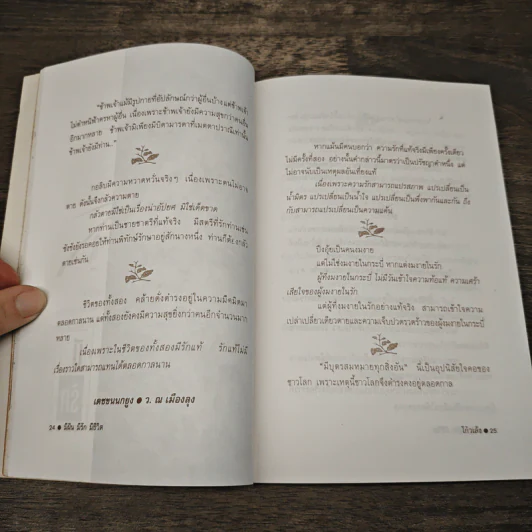 "ข้าพเจ้าแม้มีรูปกายที่อัปลักษณ์กว่าผู้อื่นบ้างแต่ข้าพเจ้า
ไม่ตำหนิฟ้าตรหาผู้อื่น เนื่องเพราะข้าพเจ้ายังมีความสุขกว่าคนอื่น
อีกมากหลาย ข้าพเจ้ามิเพียงมีบิดามารดาที่เมตตาปรานีเท่านั้น
ข้าพเจ้ายังมีท่าน.."
กอลิบมีความหวาดหวั่นจริงๆ เนื่องเพราะคนไม่อาจ
ตาย ดังนั้นจึงกลัวความตาย
กลัวตายมิใช่เป็นเรื่องน่าอัปยศ มิใช่เด็ดขาด
หากท่านเป็นชายชาตรีที่แท้จริง มีสตรีที่รักท่านเช่น
ซังซังยังรอคอยให้ท่านพิทักษ์รักษาอยู่สักนางหนึ่ง ท่านก็ต้องกลัว
ตายเช่นกัน
ชีวิตของทั้งสอง คล้ายดั่งดำรงอยู่ในความมืดมิดมา
ตลอดกาลนาน แต่ทั้งสองยังคงมีความสุขยิ่งกว่าคนอีกจำนวนมาก
หลาย
เนื่องเพราะในชีวิตของทั้งสองมีรักแท้ รักแท้ไม่มี
เรื่องราวใดสามารถแทนได้ตลอดกาลนาน
เดชขนนกยูง ● ว. ณ เมืองลุง
24 ● มีฝัน มีรัก มีชีวิต
หากแม้นมีคนบอกว่า ความรักที่แท้จริงมีเพียงครั้งเดียว
ไม่มีครั้งที่สอง อย่างนั้นคำกล่าวนี้มาตรว่าเป็นปรัชญาคำหนึ่ง แต่
ไม่อาจนับเป็นเหตุผลอันเที่ยงแท้
เนื่องเพราะความรักสามารถแปรสภาพ แปรเปลี่ยนเป็น
น้ำมิตร แปรเปลี่ยนเป็นน้ำใจ แปรเปลี่ยนเป็นพึ่งพากันและกัน ถึง
กับสามารถแปรเปลี่ยนเป็นความแค้น
ปึงอุ้ยเป็นคนงมงาย
แต่ไม่ใช่งมงายในกระบี่ หากแต่งมงายในรัก
ผู้ที่งมงายในกระบี่ ไม่มีวันเข้าใจความท้อแท้ ความเศร้า
เสียใจของผู้งมงายในรัก
แต่ผู้ที่งมงายในรักอย่างแท้จริง สามารถเข้าใจความ
เปล่าเปลี่ยวเดียวดายและความเจ็บปวดรวดร้าวของผู้งมงายในกระบี่
"มีบุตรสมหมายทุกสิ่งอัน" นี่เป็นอุปนิสัยใจคอของ
ชาวโลก เพราะเหตุนี้ชาวโลกจึงดำรงคงอยู่ตลอดกาล
โก้วเล้ง ● 25